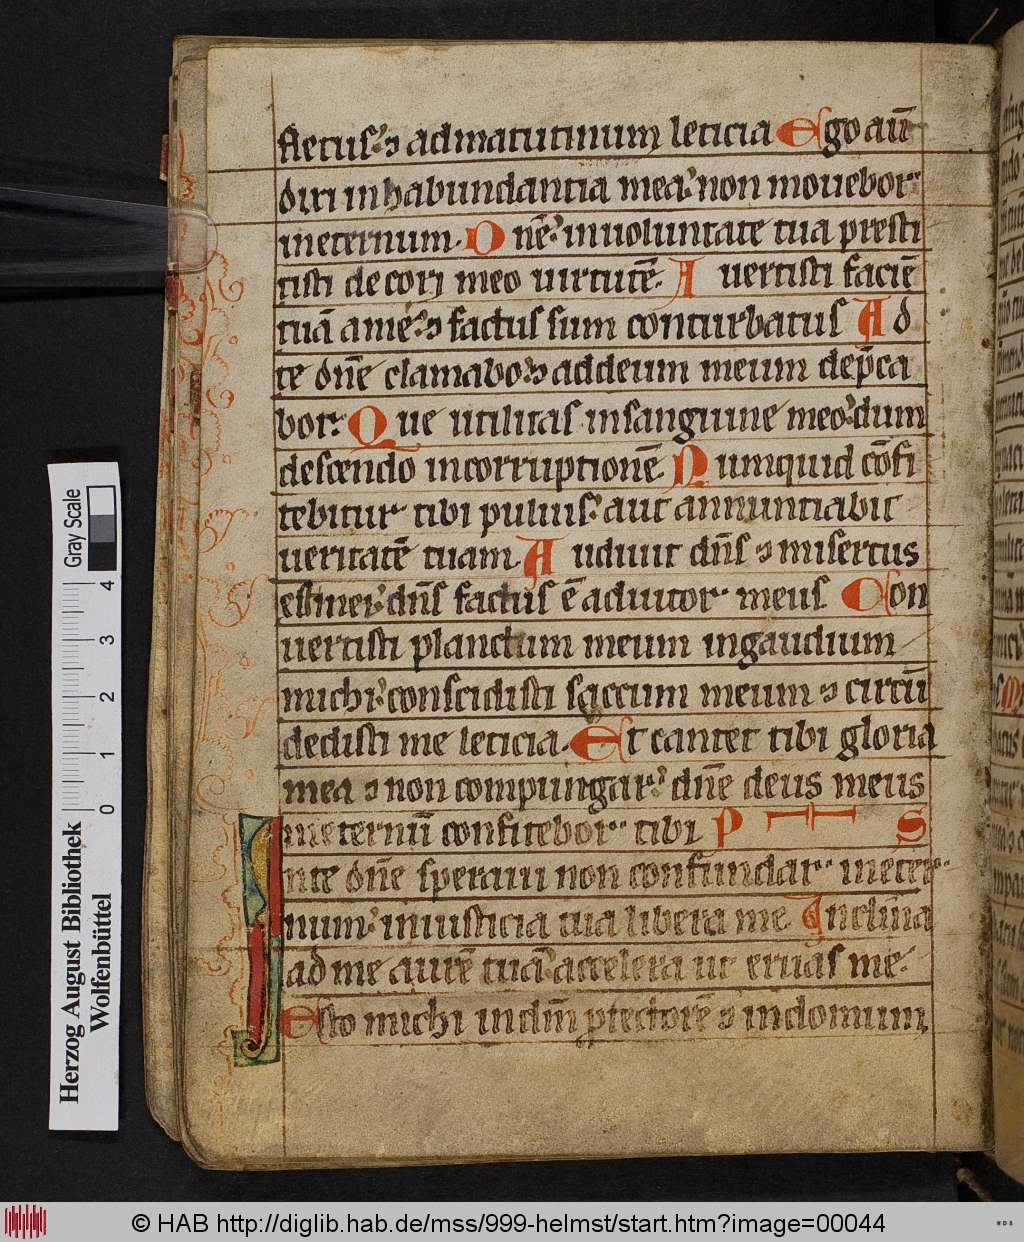 fletus. ⁊ ad matutinum leticia Ego aū
dixi in habundantia mea. non mouebor
in eternum. Dnē. in uoluntate tua presti
tisti decori meo uirtutē. Auertisti faciē
tuā a me. ⁊ factus sum conturbatus Ad
te dn̄e clamabo. ⁊ ad deum meum dep̄ca
bor. Que utilitas in sanguine meo. dum
descendo in corruptionē Numquid cōfi
tebitur tibi puluis. aut annuntiabit
ueritatē tuam. Audiuit dn̄s ⁊ misertus
est mei. dn̄s factus ē adiutor meus Con
uertisti planctum meum in gaudium
michi. conscidisti saccum meum ⁊ circū
dedisti me leticia. Et cantet tibi gloria
mea ⁊ non compungar. dn̄e deus meus
in eternū confitebor tibi PS
In te dn̄e speraui non confundar in eter
num. in iusticia tua libera me Inclina
ad me aurē tuā. accelera ut eruas me.
Esto michi in dm̄ ptectorē ⁊ in domum
Gray Scale
4
3
2
1
0
Herzog August Bibliothek
Wolfenbüttel
© HAB http://diglib.hab.de/mss/999-helmst/start.htm?image=00044